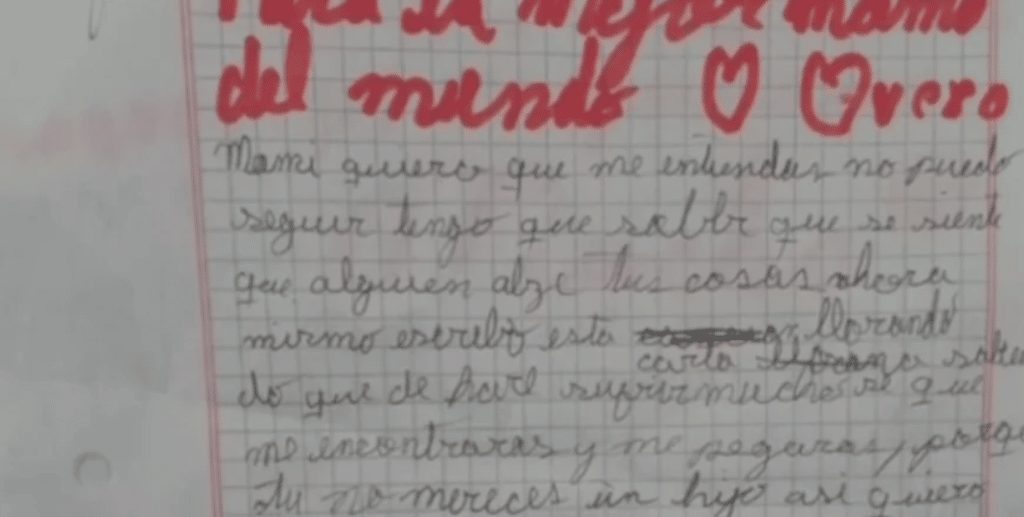 Para la mejor mamá
del mundo vero
Mami quiero que me entiendas no puedo
seguir tengo que saber que se siente
que alguien alze tus cosas ahora
mismo escribo esta llorando
carta
do que de hare sufrir mucho se que
me encontraras y me pegaras, porq
tu no mereces un hijo asi quiero